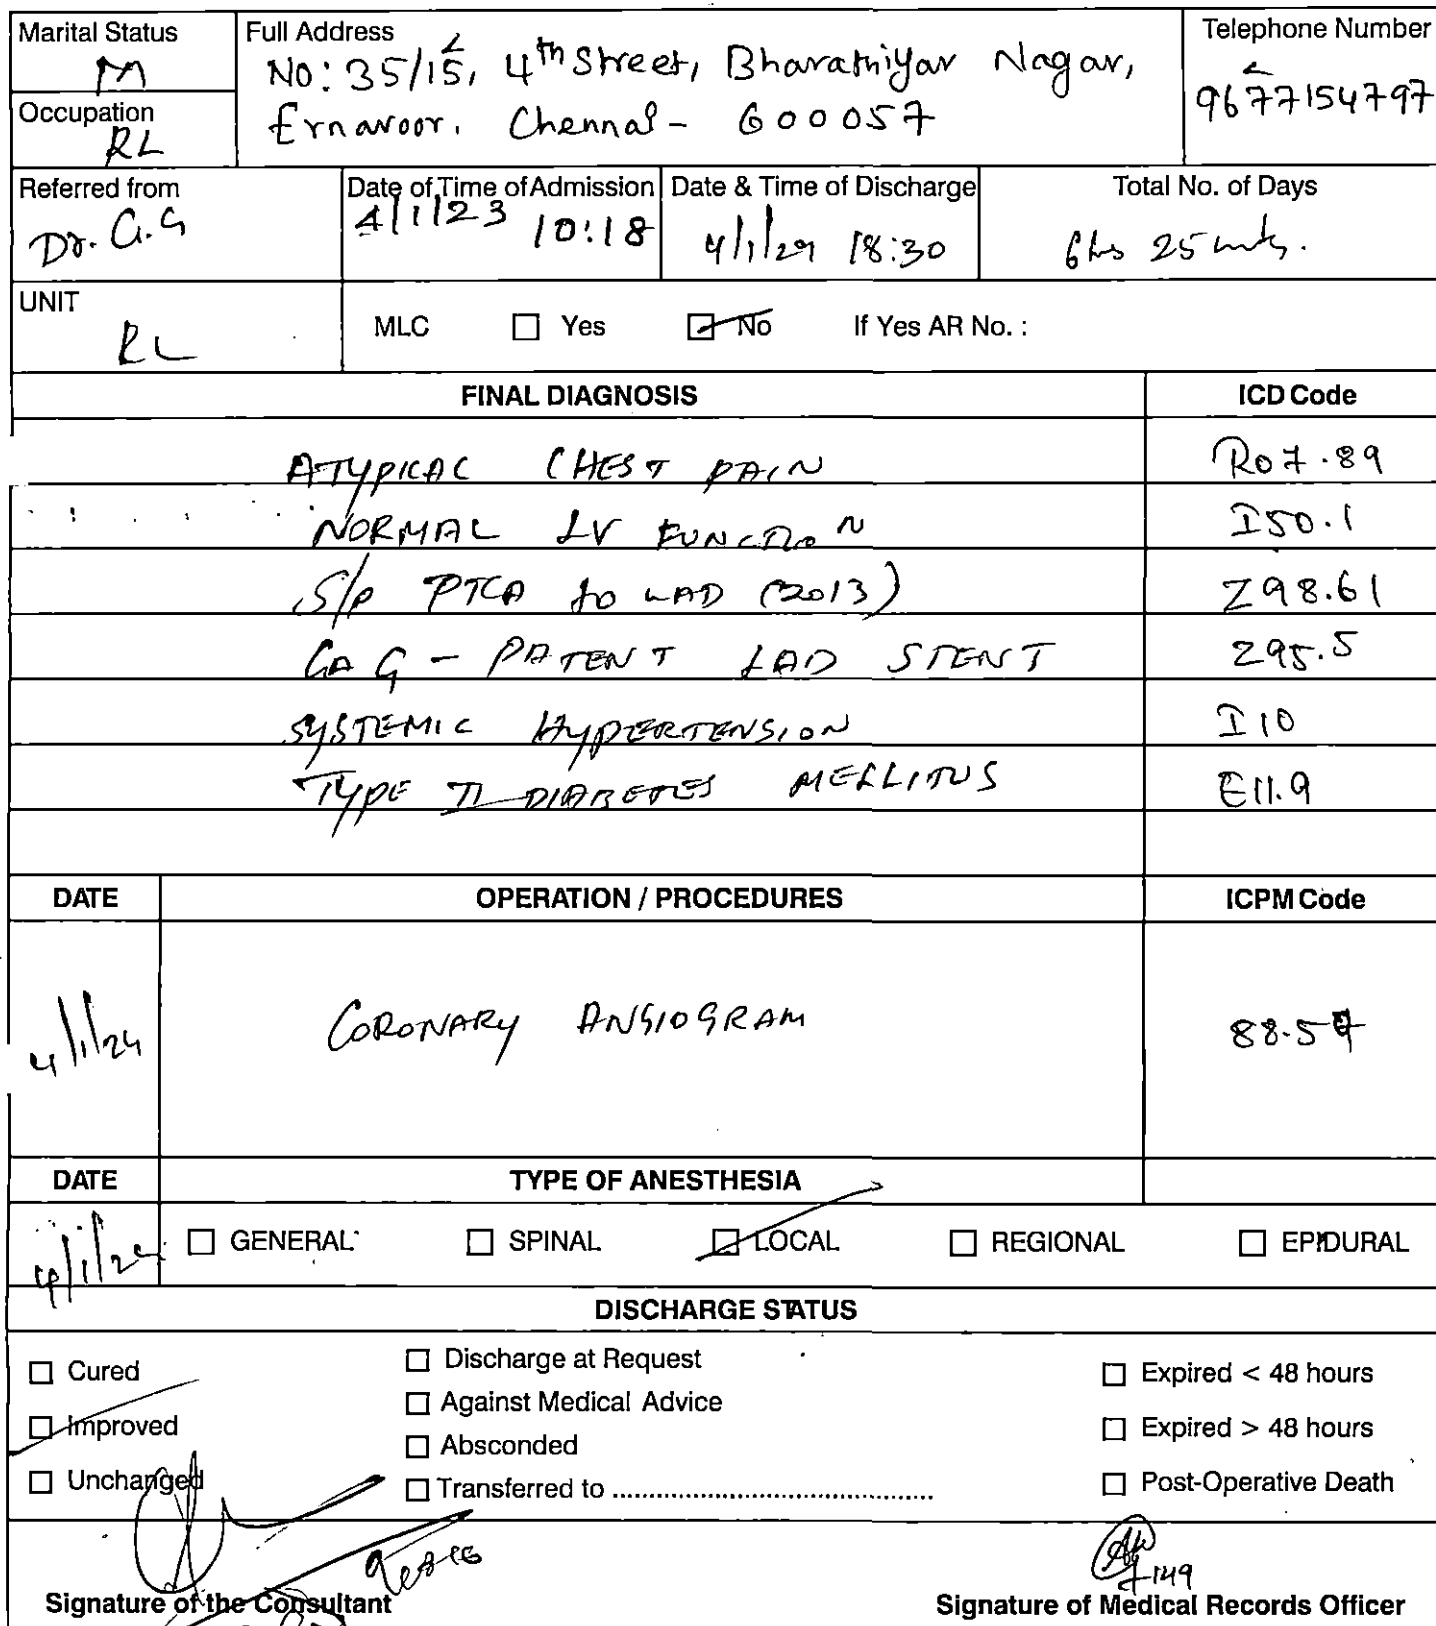 Marital Status
M
Full Address
No: 35/15, 4th Street, Bharathiyar Nagar,
Ernavoor, Chennai - 600057
Telephone Number
9677154797
Occupation
RL
Referred from
Dr. G.G
Date of Time of Admission
4/1/23 10:18
Date & Time of Discharge
4/1/24 18:30
Total No. of Days
6hs 25 mts.
UNIT
RL
MLC ☐ Yes ☑ No If Yes AR No. :
FINAL DIAGNOSIS ICD Code
ATYPICAL CHEST PAIN R07.89
NORMAL LV FUNCTION I50.1
S/P PTCA to LAD (2013) Z98.61
CAG - PATENT LAD STENT Z95.5
SYSTEMIC HYPERTENSION I10
TYPE II DIABETES MELLITUS E11.9
DATE OPERATION / PROCEDURES ICPM Code
4/1/24 CORONARY ANGIOGRAM 88.57
DATE TYPE OF ANESTHESIA
4/1/24 ☐ GENERAL ☐ SPINAL ☑ LOCAL ☐ REGIONAL ☐ EPIDURAL
DISCHARGE STATUS
☐ Cured
☑ Improved
☐ Unchanged
☐ Discharge at Request
☐ Against Medical Advice
☐ Absconded
☐ Transferred to ..........................................
☐ Expired < 48 hours
☐ Expired > 48 hours
☐ Post-Operative Death
Signature of the Consultant
Signature of Medical Records Officer